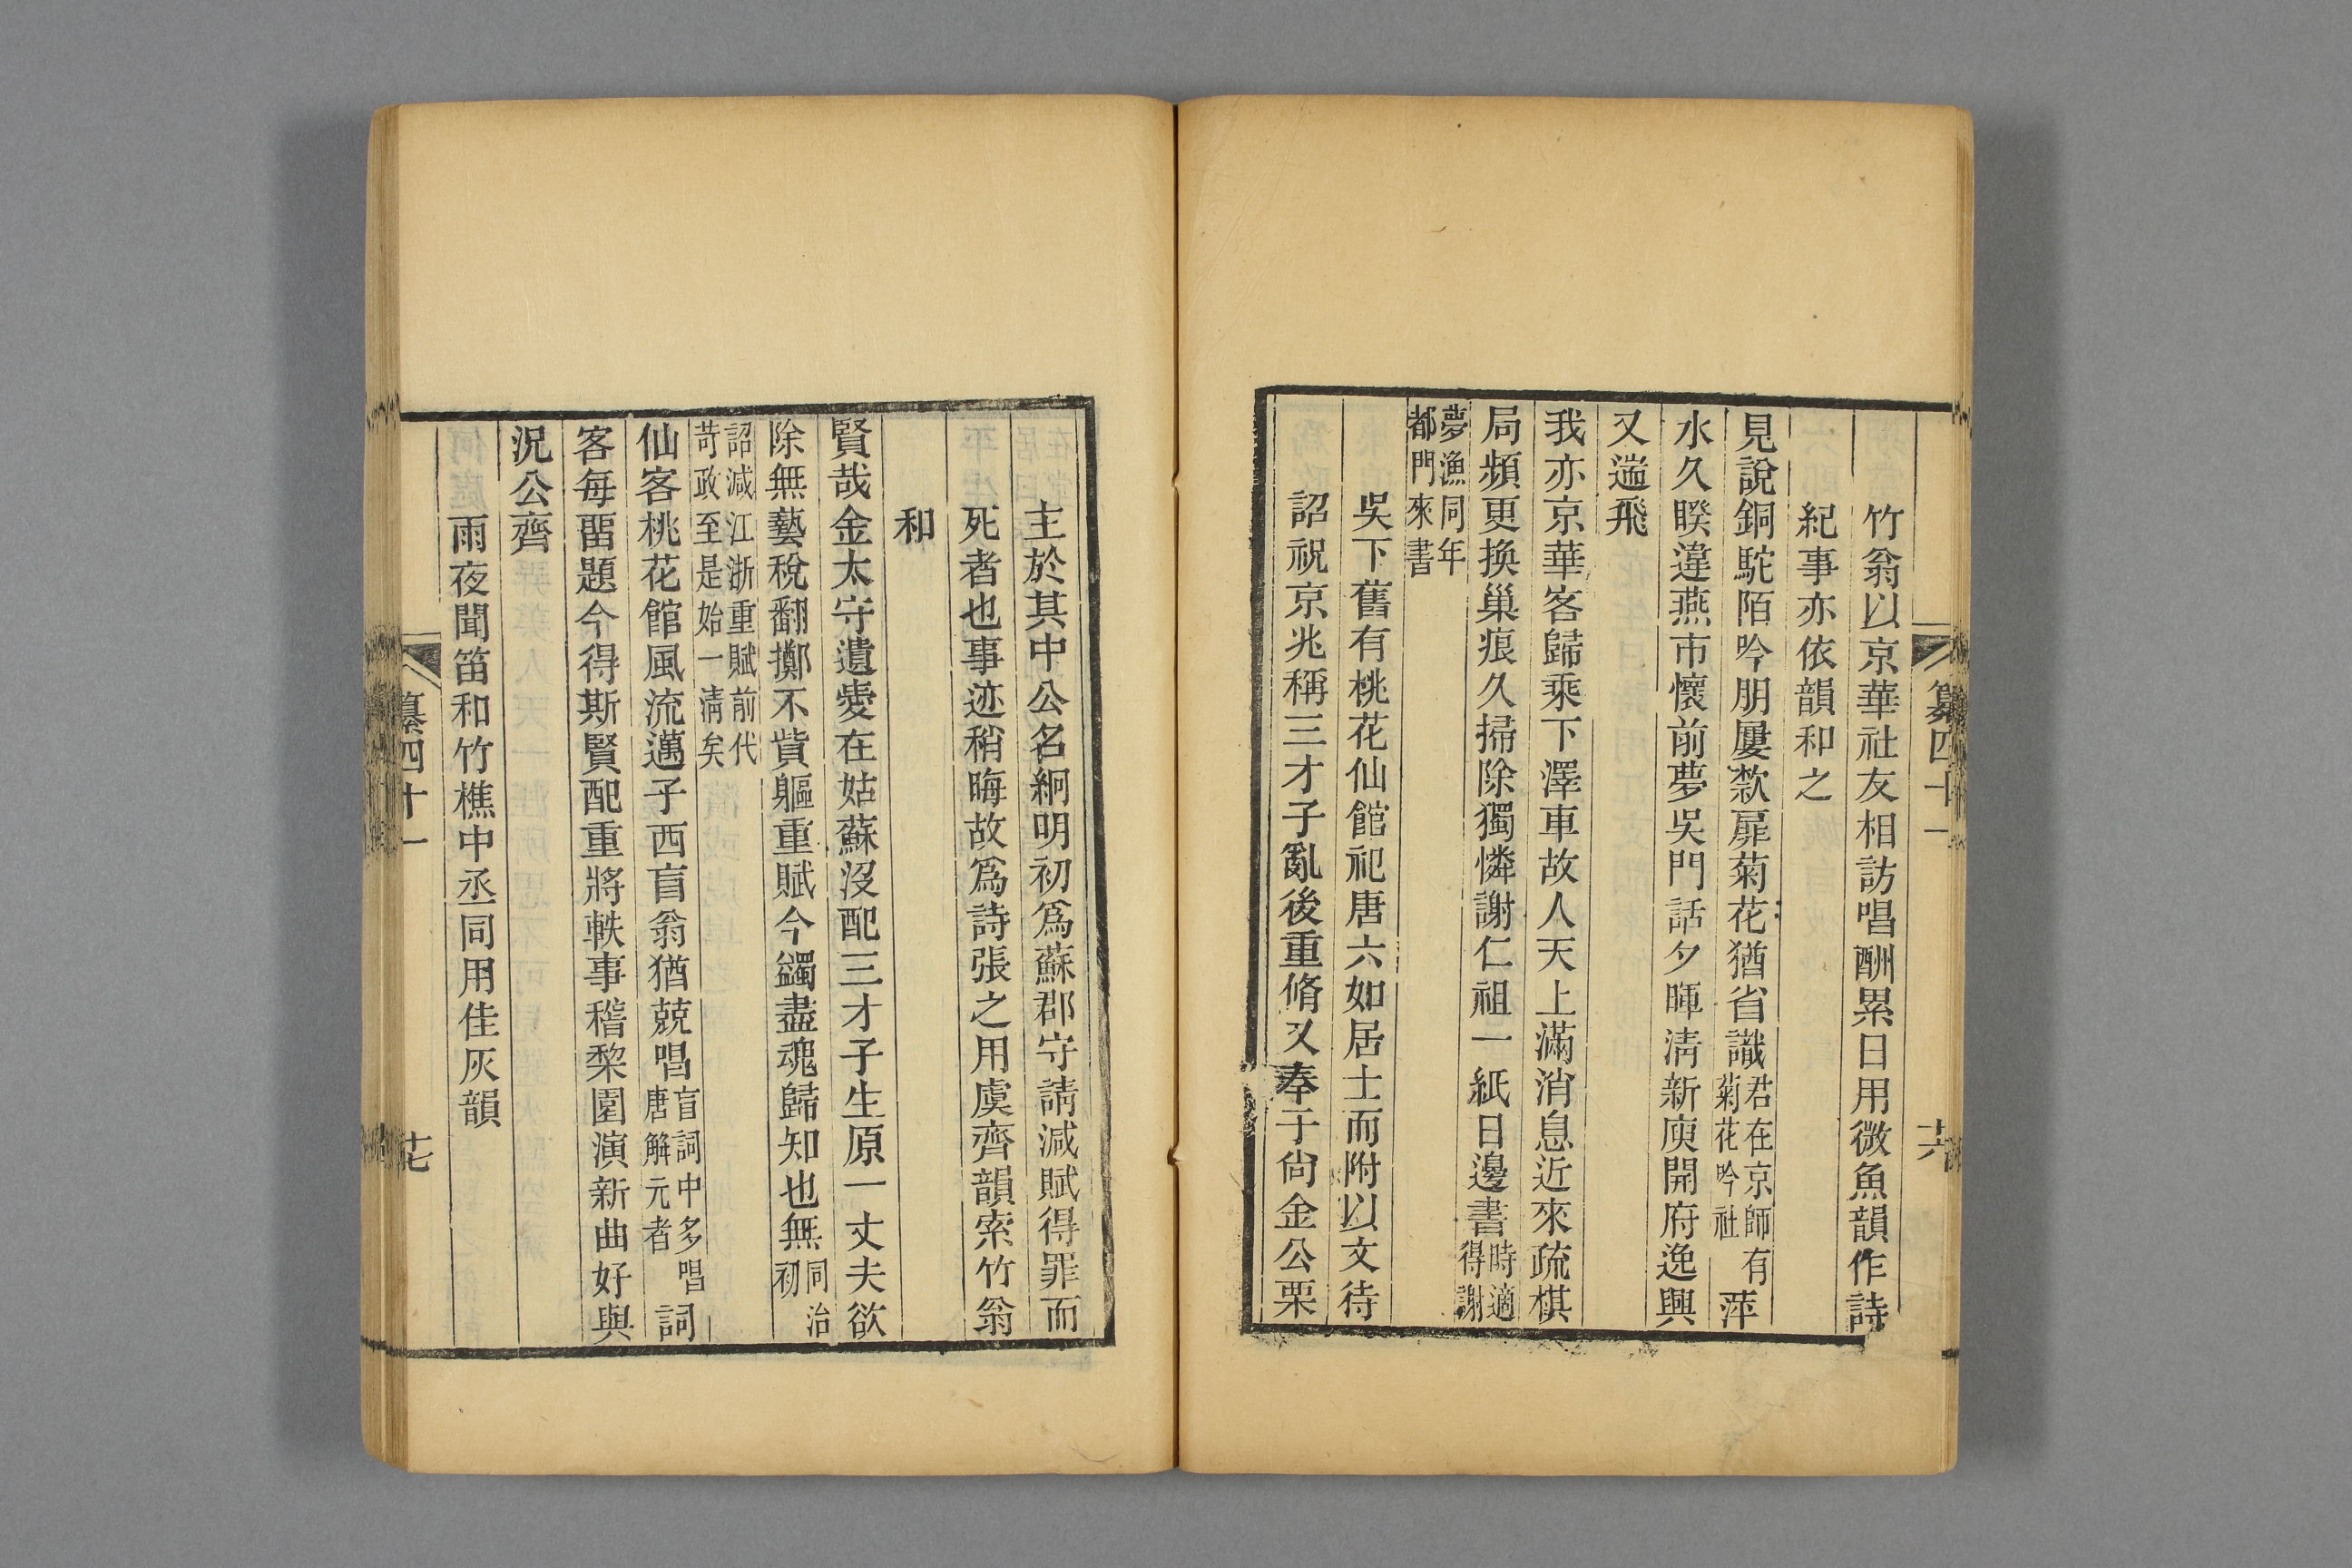 纂四十一
六
竹翁以京華社友相訪唱酬累日用微魚韻作詩
紀事亦依韻和之
見說銅駝陌吟朋屢欵扉菊花猶省識君在京師有菊花吟社萍
水久睽違燕市懷前夢吳門話夕暉淸新庾開府逸興
又遄飛
我亦京華客歸乘下澤車故人天上滿消息近來疏棋
局頻更換巢痕久掃除獨憐謝仁祖一紙日邊書時適得謝
夢漁同年都門來書
吳下舊有桃花仙館祀唐六如居士而附以文待
詔祝京兆稱三才子亂後重脩又奉于尙金公栗
主於其中公名絅明初爲蘇郡守請減賦得罪而
死者也事迹稍晦故爲詩張之用虞齊韻索竹翁
和
賢哉金太守遺愛在姑蘇沒配三才子生原一丈夫欲
除無藝稅翻擲不貲軀重賦今蠲盡魂歸知也無同治初
詔減江浙重賦前代苛政至是始一淸矣
仙客桃花館風流邁子西盲翁猶兢唱盲詞中多唱唐解元者詞
客每畱題今得斯賢配重將軼事稽棃園演新曲好與
況公齊
雨夜聞笛和竹樵中丞同用佳灰韻
纂四十一
七